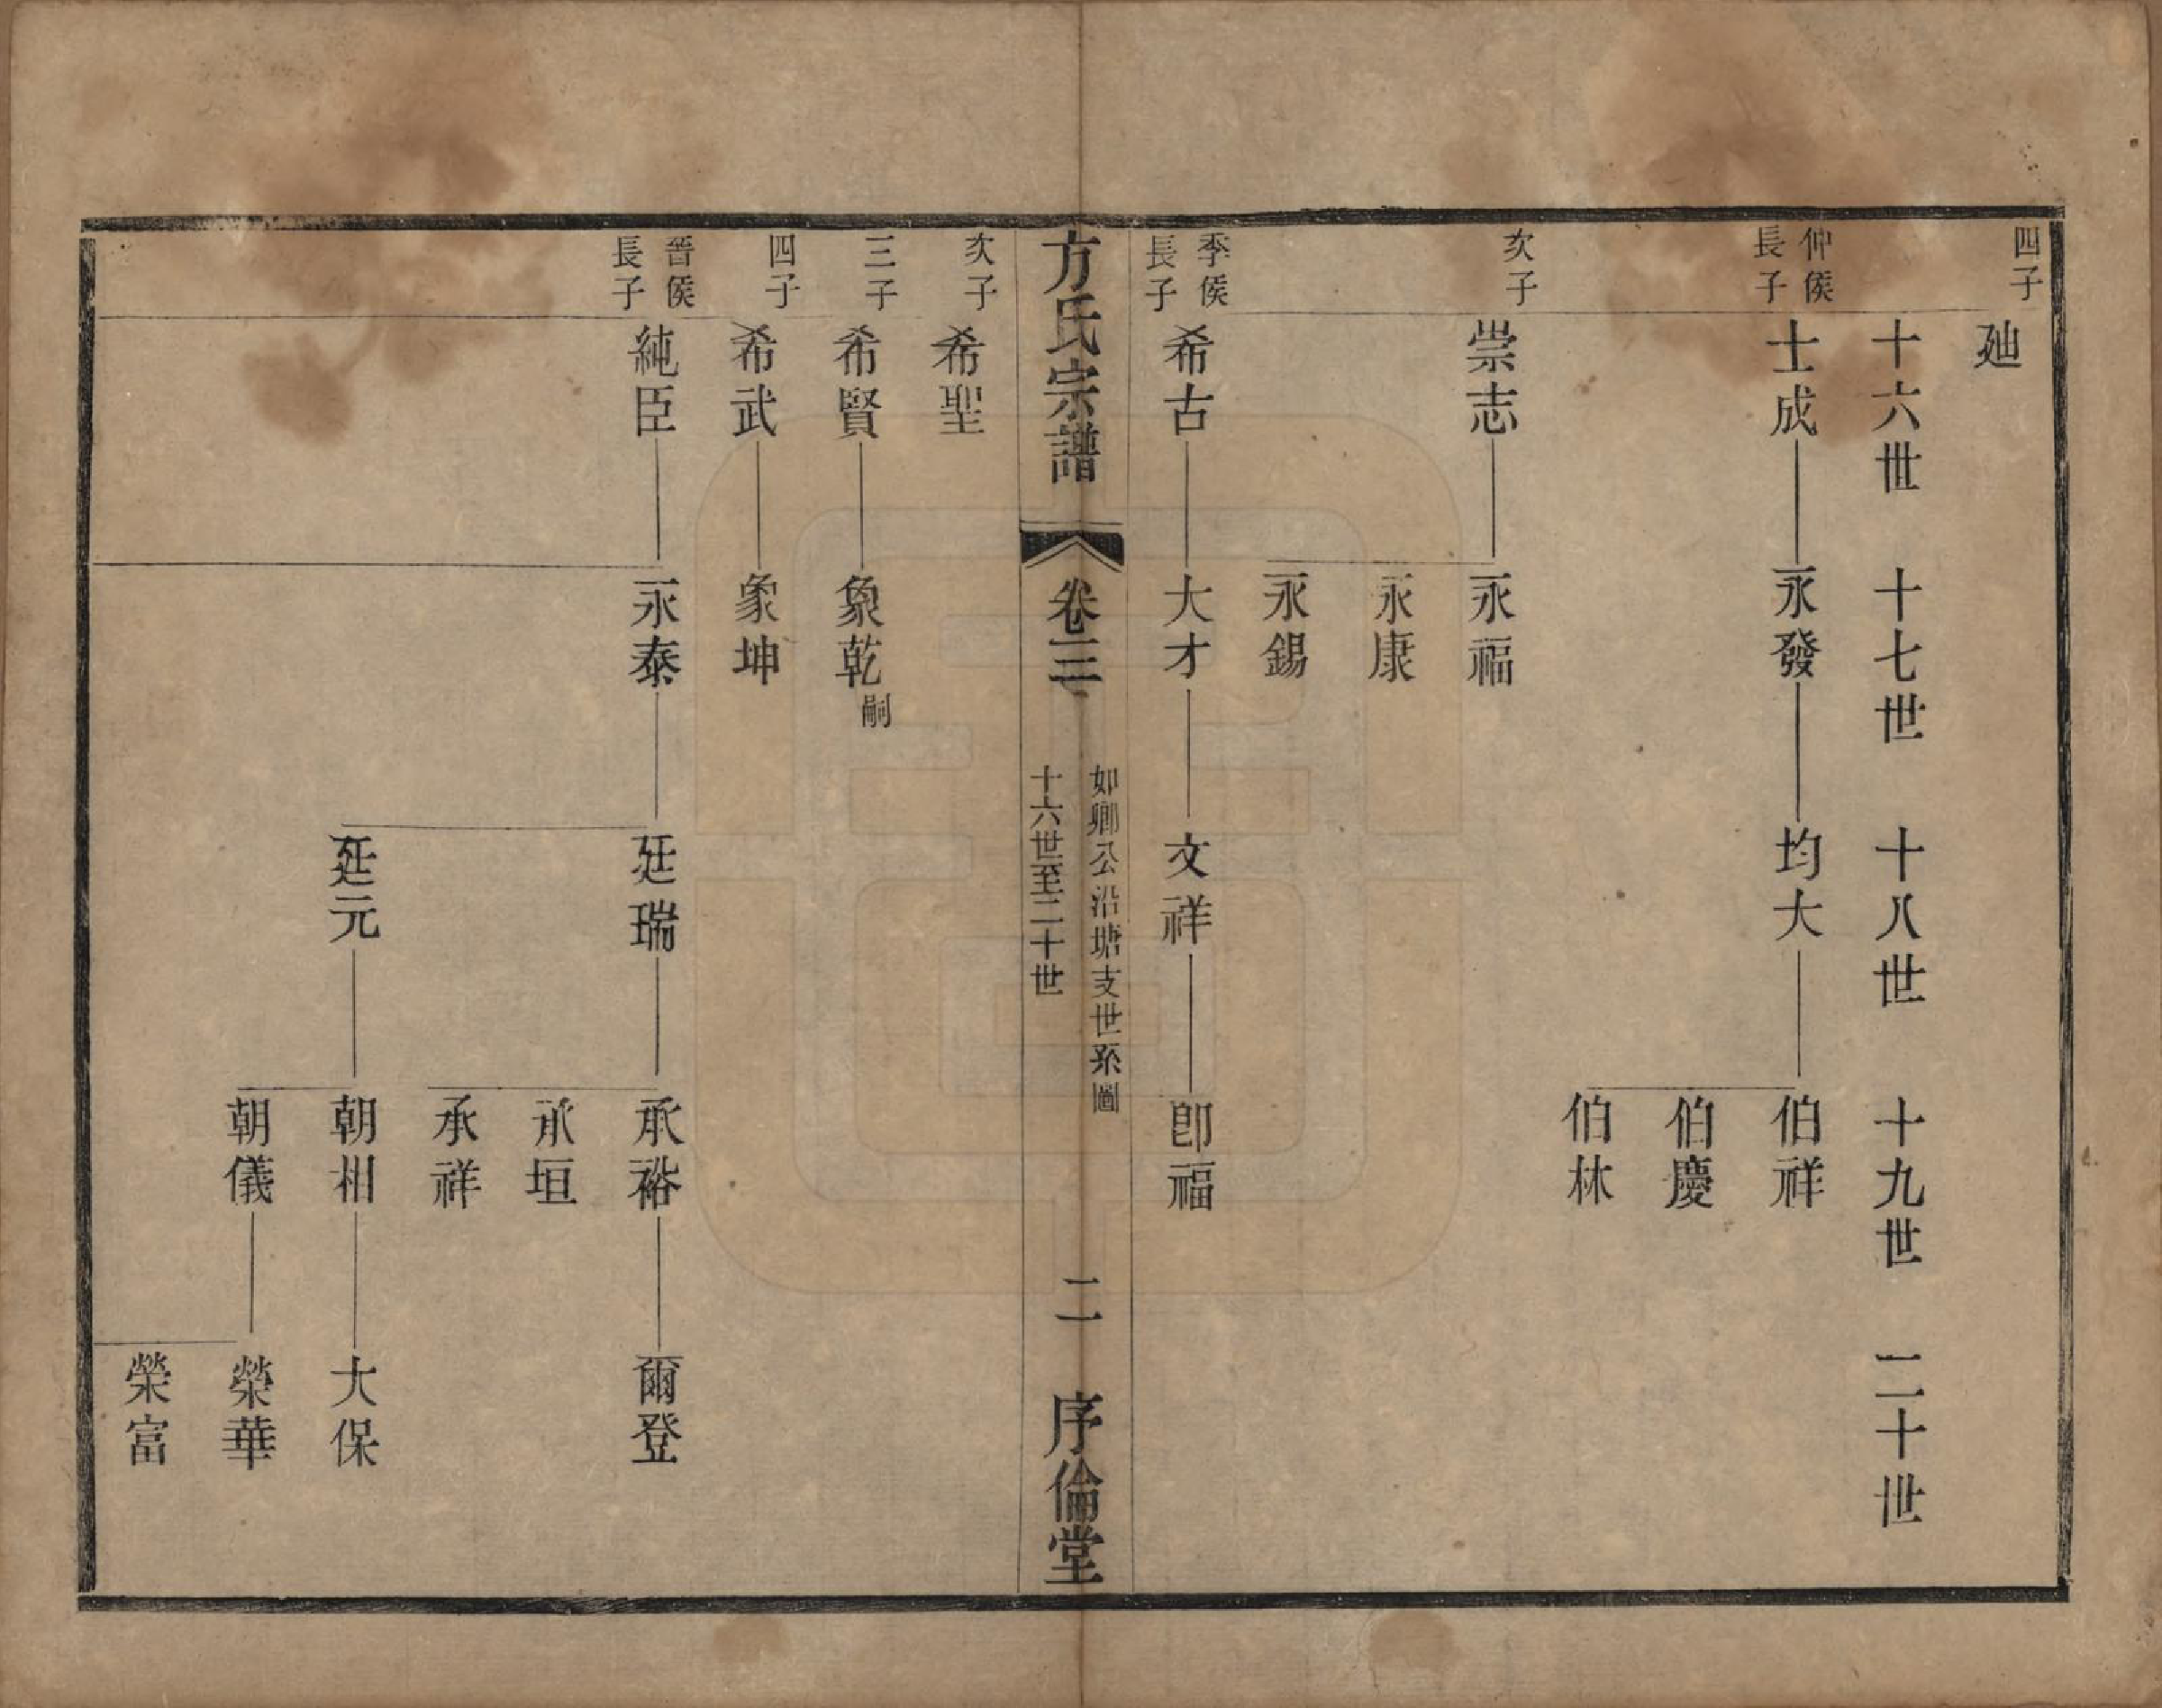 四子
廸
十六世　十七世　十八世　十九世　二十世
仲侯
長子
士成　永發　均大　伯祥
伯慶
伯林
次子
崇志　永福
永康
永錫
季侯
長子
希古　大才　文祥　卽福
方氏宗譜　卷三　二　序倫堂
如卿公沿塘支世系圖
十六世至二十世
次子
希聖
三子
希賢　象乾嗣
四子
希武　象坤
晉侯
長子
純臣　永泰　廷瑞　承裕　爾登
承垣
承祥
廷元　朝相　大保
朝儀　榮華
榮富